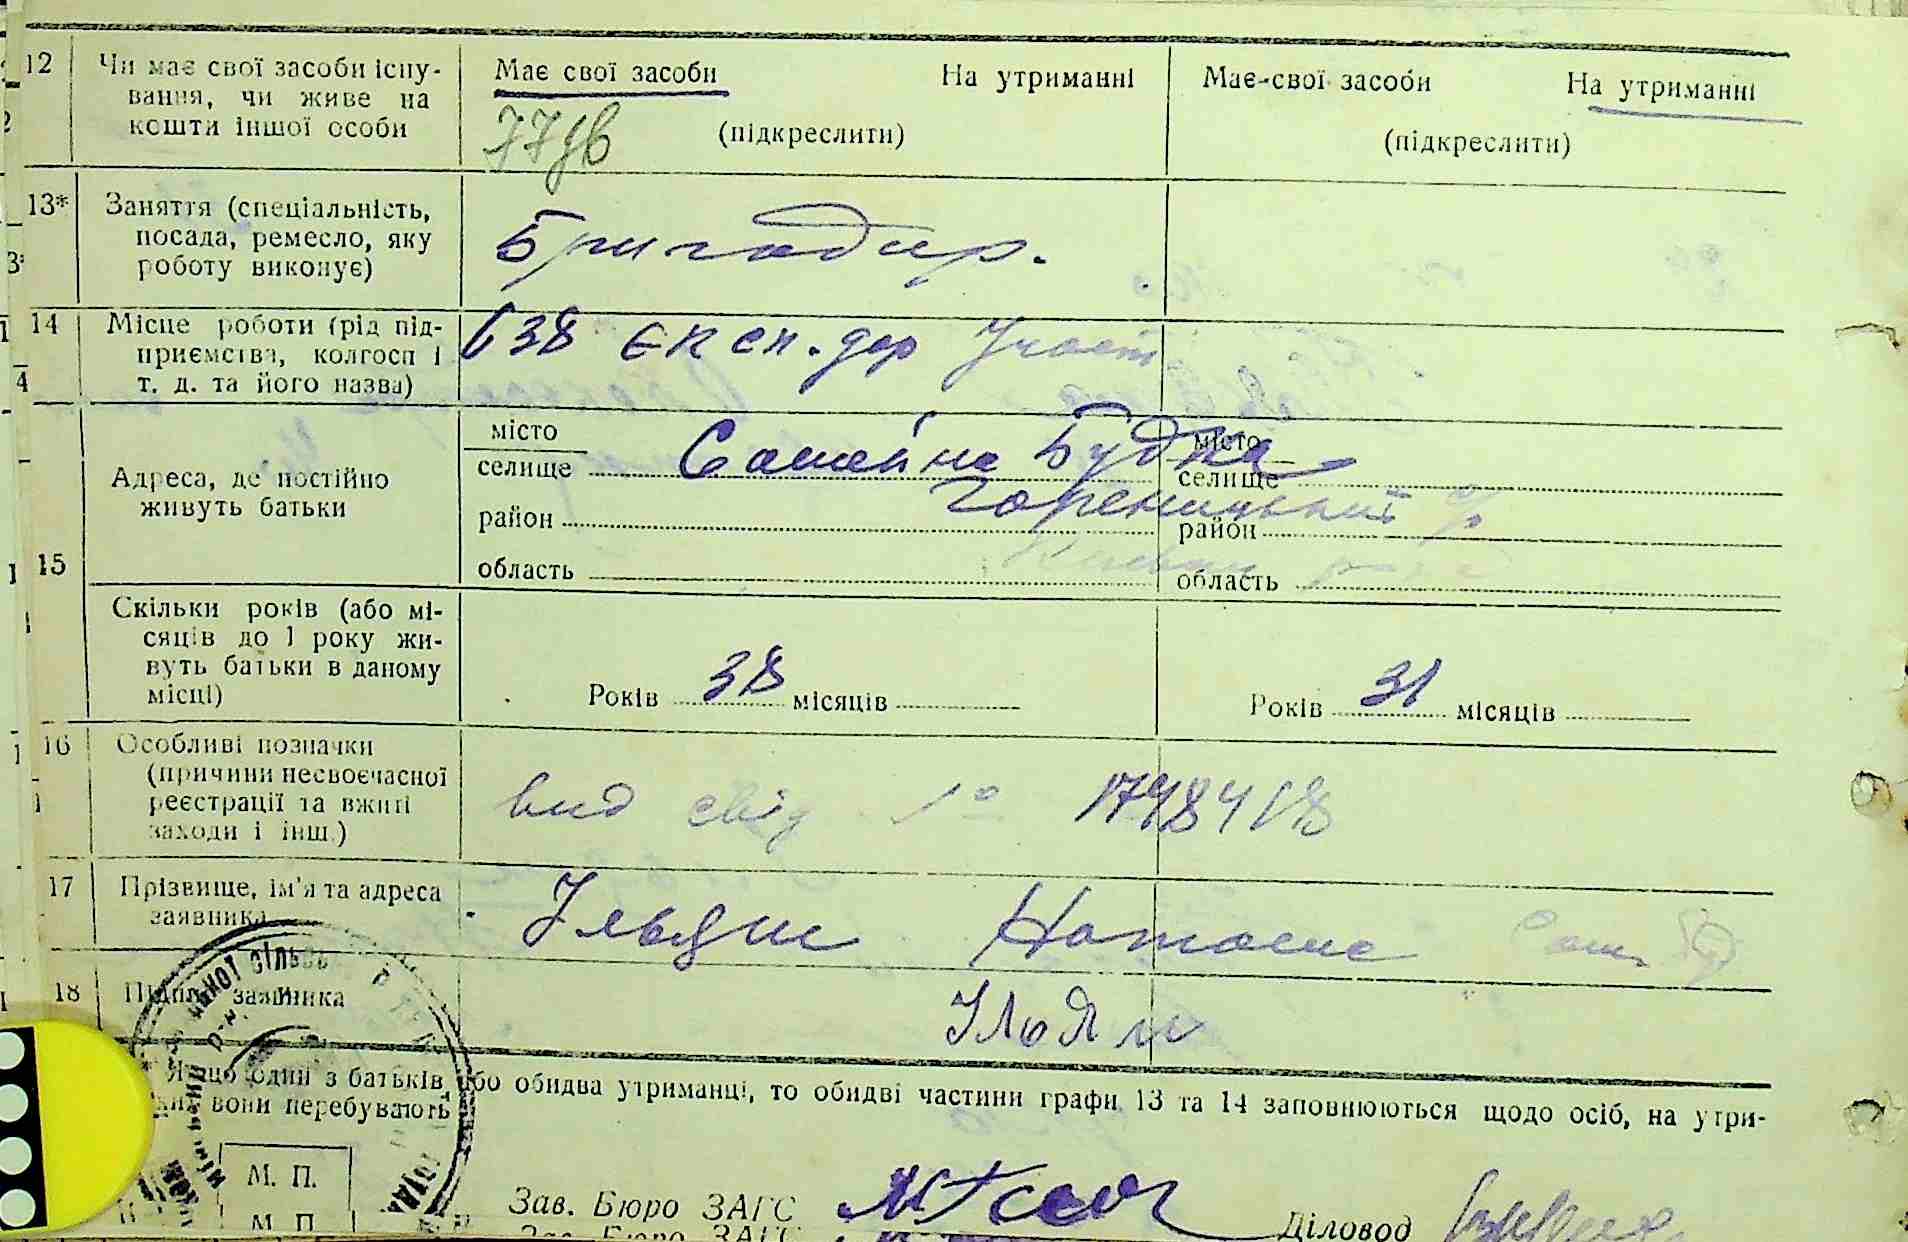 12 Чи має свої засоби існу-
вання, чи живе на
кошти іншої особи
Має свої засоби На утриманні
(підкреслити)
Має свої засоби На утриманні
(підкреслити)
13* Заняття (спеціальність,
посада, ремесло, яку
роботу виконує)
Бригадир.
14 Місце роботи (рід під-
приємства, колгосп і
т. д. та його назва)
638 Експ. дор Участ
15
Адреса, де постійно
живуть батьки
місто
селище Будка
район
область
місто
селище
район
область
Скільки років (або мі-
сяців до 1 року жи-
вуть батьки в даному
місці)
Років 38 місяців
Років 31 місяців
16 Особливі позначки
(причини несвоєчасної
реєстрації та вжиті
заходи і інш.)
вид свід № 1748418
17 Прізвище, ім'я та адреса
заявника
Ульян Наталия
18 Підпис заявника
Ульян
Якщо один з батьків або обидва утриманці, то обидві частини графи 13 та 14 заповнюються щодо осіб, на утри-
вони перебувають
М. П.
Зав. Бюро ЗАГС
Діловод
М. П.
Зав. Бюро ЗАГС